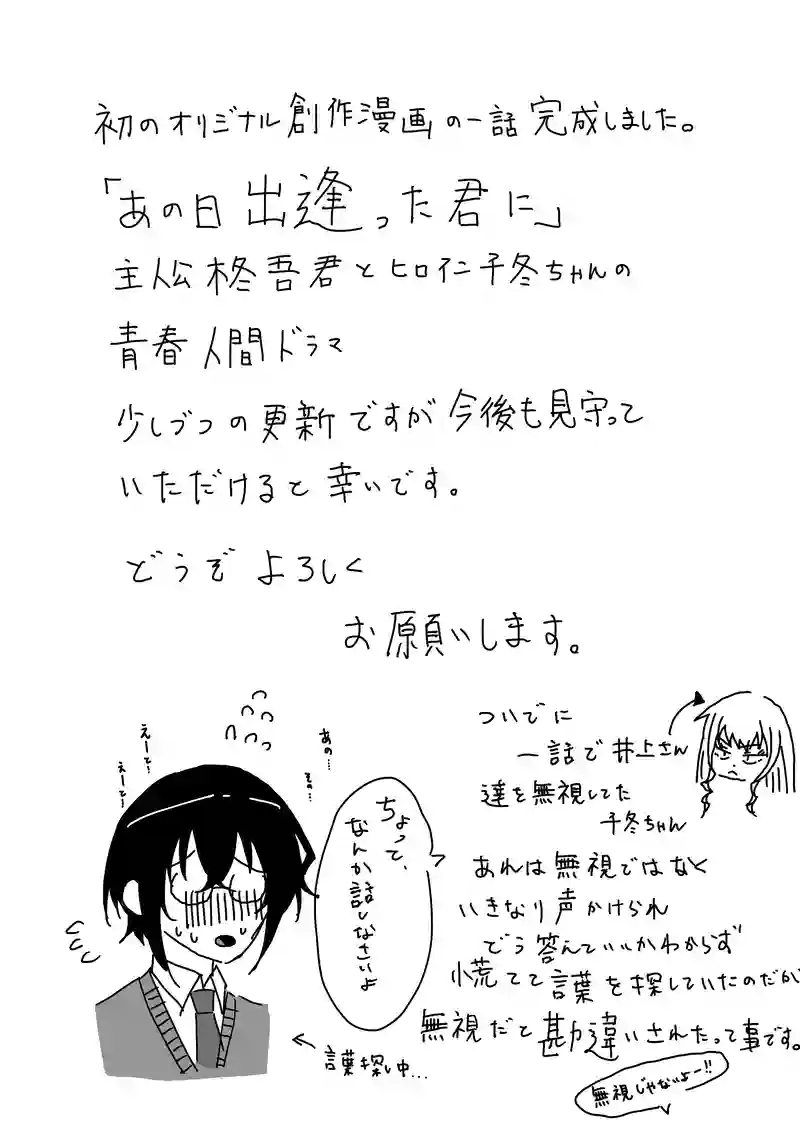 初のオリジナル創作漫画の一話完成しました。
「あの日出逢った君に」
主人公柊吾君とヒロイン千冬ちゃんの
青春人間ドラマ
少しづつの更新ですが今後も見守って
いただけると幸いです。
どうぞよろしく
お願いします。
ついでに
一話で井上さん
達を無視してた
千冬ちゃん
あれは無視ではなく
いきなり声かけられ
どう答えていいかわからず
慌てて言葉を探していたのだが
無視だと勘違いされたって事です。
無視じゃないよー!!
ちょって、
なんか話しなさいよ
えーて…
えーて…
あの…
その…
言葉探し中…